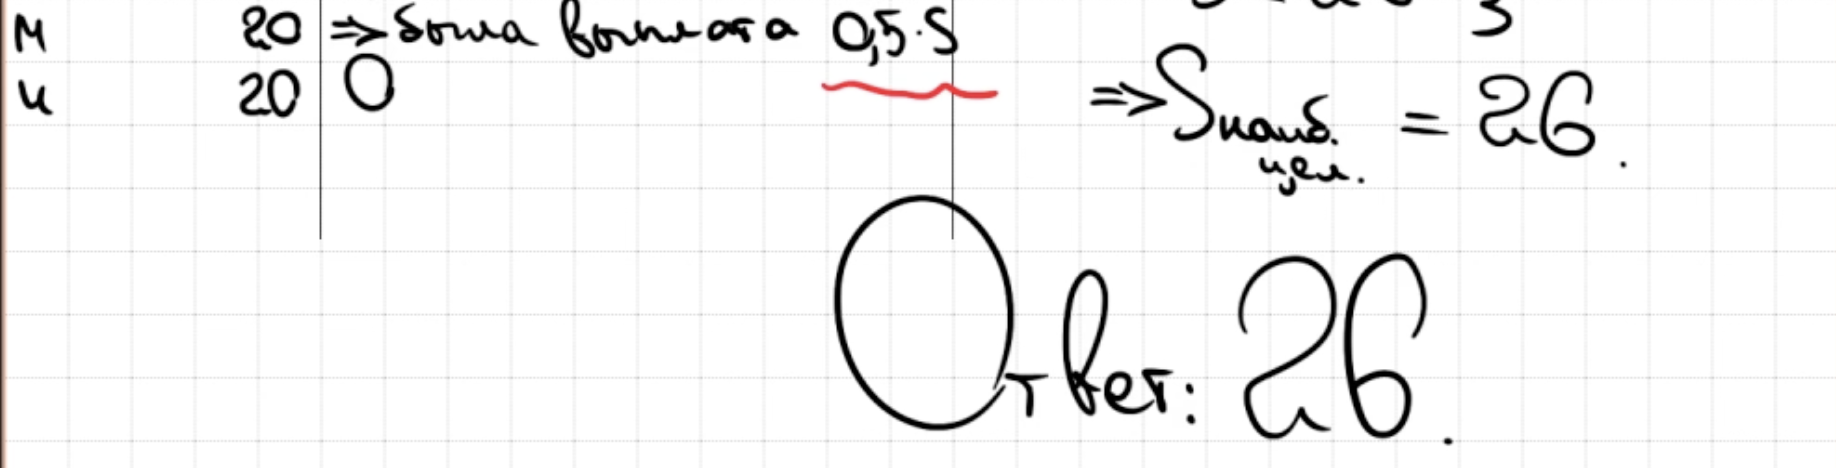 М 20 ⇒ была выплата 0,5·S
И 20 0
⇒ Sнаиб. цел. = 26.
Ответ: 26.